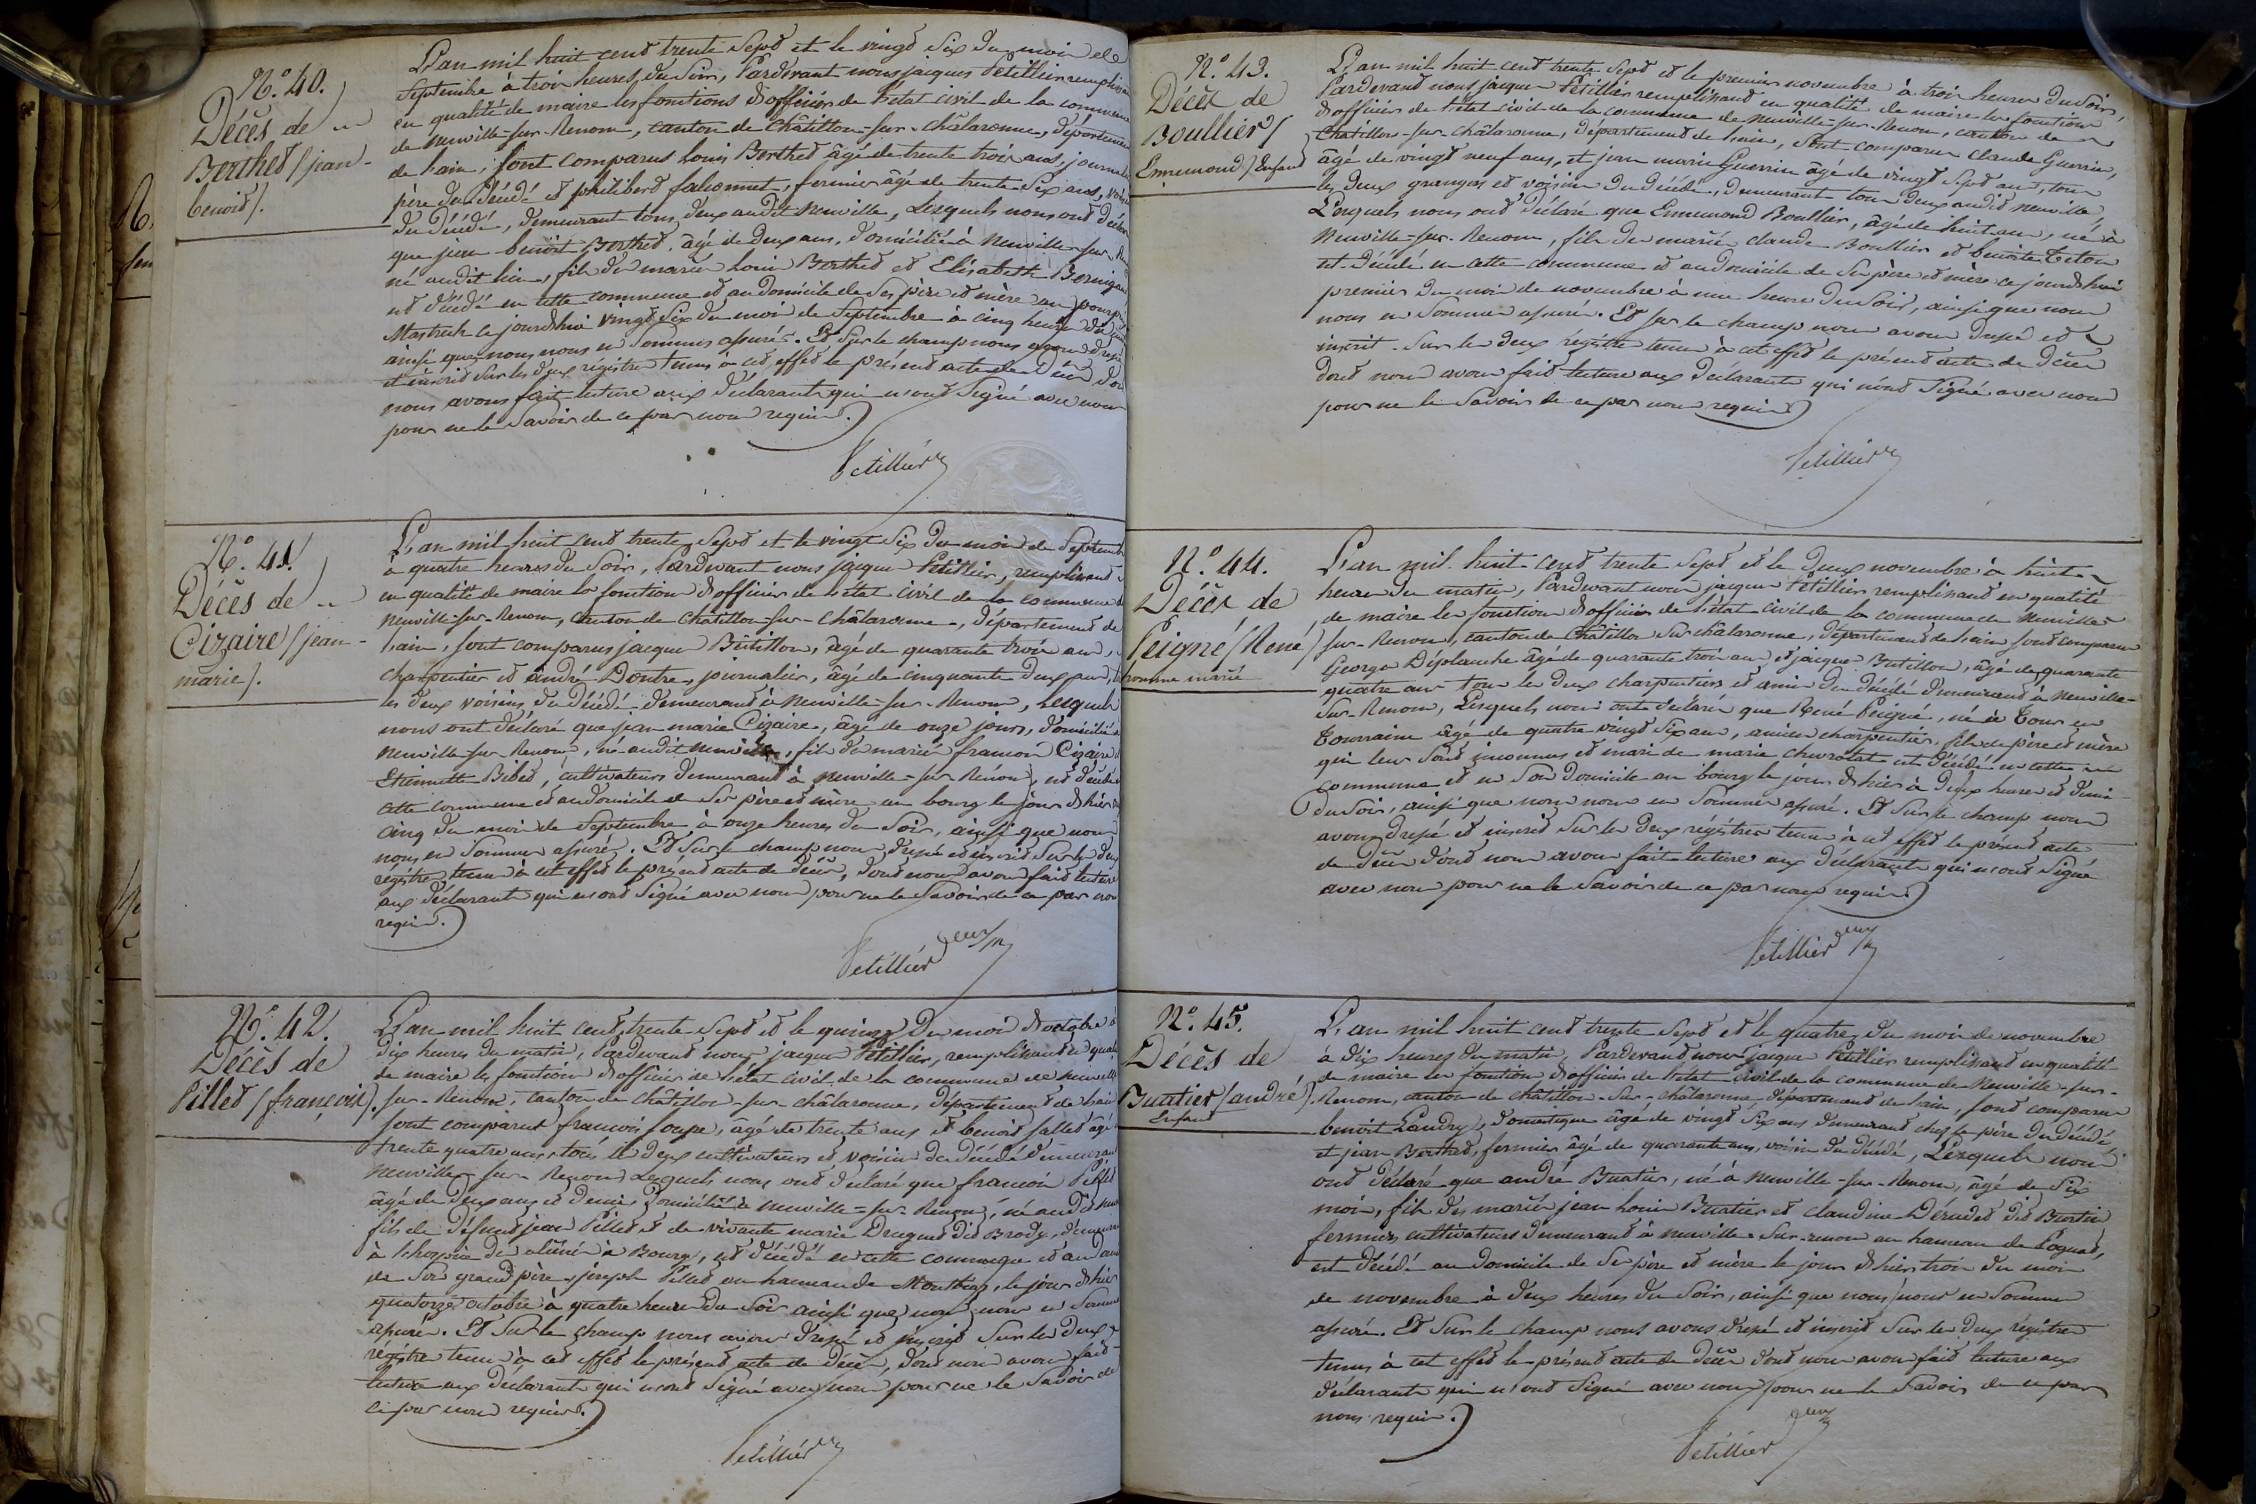 N.º 40.
Décès de
Berthet (jean-
benoit).
L'an mil huit cent trente sept et le vingt six du mois de
septembre à trois heures du soir, Pardevant nous jacques Petillier remplissant
en qualité de maire les fonctions d'officier de l'état civil de la commune
de Neuville-sur-Renom, canton de Châtillon-sur-Châlaronne, département
de l'ain, sont comparus louis Berthet âgé de trente trois ans, journalier
père du décédé et philibert falconnet, fermier âgé de trente six ans, voisin
du décédé, demeurant tous deux audit Neuville, Lesquels nous ont déclaré
que jean benoit Berthet, âgé de deux ans, domicilié à Neuville-sur-
né audit lieu, fils de mariés louis Berthet et Elisabeth
est décédé en cette commune et au domicile de ses père et mère au
ce jourd'hui vingt six du mois de septembre à cinq heures du
ainsi que nous nous en sommes assurés. Et sur le champ nous avons dressé
et inscrit sur les deux régistres tenus à cet effet le présent acte de décès dont
nous avons fait lecture aux déclarants qui n'ont signé avec nous
pour ne le savoir de ce par nous requis.
Petillier
N.º 41.
Décès de
Cizaire (jean-
marie).
L'an mil huit cent trente sept et le vingt six du mois de Septembre
à quatre heures du soir, Pardevant nous jacques Petillier, remplissant
en qualité de maire les fonctions d'officier de l'état civil de la commune de
Neuville-sur-Renom, canton de Châtillon-sur-Châlaronne, département de
l'ain, sont comparus jacques Butillon, âgé de quarante trois ans,
charpentier et andré Dontre, journalier, âgé de cinquante deux ans,
les deux voisins du décédé demeurant à Neuville-sur-Renom, Lesquels
nous ont déclaré que jean marie Cizaire, âgé de onze jours, domicilié à
Neuville-sur-Renom, né audit Neuville, fils de mariés francois Cizaire
Etiennette Bibet, cultivateurs demeurant à Neuville-sur-Renom, est décédé
cette commune et au domicile de ses père et mère au bourg le jour d'hier
cinq du mois de septembre à onze heures du soir, ainsi que nous
nous en sommes assurés. Et sur le champ nous dressé et inscrit sur les deux
régistres tenus à cet effet le présent acte de décès, dont nous avons fait lecture
aux déclarants qui n'ont signé avec nous pour ne le savoir de ce par nous
requis.
Petillier
N.º 42.
Décès de
Pillet (françois).
L'an mil huit cent trente sept et le quinze du mois d'octobre à
dix heures du matin, Pardevant nous jacques Petillier, remplissant en qualité
de maire les fonctions d'officier de l'état civil de la commune de Neuville
sur-Renom, canton de Châtillon-sur-châlaronne, département de l'ain
sont comparus francois foupe, âgé de trente ans et benoit fallet âgé
trente quatre ans, tous les deux cultivateurs et voisins du décédé demeurant
Neuville-sur-Renom Lesquels nous ont déclaré que francois Pillet
âgé de deux ans et demi, domicilié à Neuville-sur-Renom, né audit
fils de défunt jean Pillet et de vivante marie Druguet dit Brody, demeurant
à l'hospice de à Bourg, est décédé en cette commune et au
de son grand père joseph Pillet au hameau de le jour d'hier
quatorze octobre à quatre heures du soir ainsi que nous nous en sommes
assurés. Et sur le champ nous avons dressé et inscrit sur les deux
régistres tenus à cet effet le présent acte de décès, dont nous avons fait
lecture aux déclarants qui n'ont signé avec nous pour ne le savoir de
ce par nous requis.
Petillier
N.º 43.
Décès de
Boullier (
Ennemond) Enfant
L'an mil huit cent trente sept et le premier novembre à trois heures du soir,
Pardevant nous jacques Petillier remplissant en qualité de maire les fonctions
d'officier de l'état civil de la commune de Neuville-sur-Renom, canton de
Chatillon-sur-Châlaronne, département de l'ain, sont comparus claude Guerrin,
âgé de vingt neuf ans, et jean marie Guerrin âgé de vingt sept ans, tous
les deux grangers et voisins du décédé, demeurant tous deux audit Neuville,
Lesquels nous ont déclaré que Ennemond Boullier, âgé de huit ans, né à
Neuville-sur-Renom, fils de mariés claude Boullier et benoite Teton
est décédé en cette commune et au domicile de ses père et mère ce jourd'hui
premier du mois de novembre à une heure du soir, ainsi que nous
nous en sommes assurés. Et sur le champ nous avons dressé et
inscrit sur les deux régistres tenus à cet effet le présent acte de décès
dont nous avons fait lecture aux déclarants qui n'ont signé avec nous
pour ne le savoir de ce par nous requis
Petillier
N.º 44.
Décès de
Peigné (René)
homme marié
L'an mil huit cent trente sept et le deux novembre à huit
heures du matin, Pardevant nous jacques Petillier remplissant en qualité
de maire les fonctions d'officier de l'état civil de la commune de Neuville-
sur-Renom, canton de Châtillon sur châlaronne, département de l'ain sont comparus
George Déplanche âgé de quarante trois ans et jacques Butillon, âgé de quarante
quatre ans tous les deux charpentiers et amis du décédé demeurant à Neuville-
sur-Renom, Lesquels nous ont déclaré que René Peigné, né à Tours en
Tourraine âgé de quatre vingt six ans, ancien charpentier, fils de père et mère
qui leur sont inconnus et mari de marie chevrolat est décédé en cette
commune et en son domicile au bourg le jour d'hier à deux heures et demi
du soir, ainsi que nous nous en sommes assurés. Et sur le champ nous
avons dressé et inscrit sur les deux régistres tenus à cet effet le présent acte
de décès dont nous avons fait lecture aux déclarants qui n'ont signé
avec nous pour ne le savoir de ce par nous requis
Petillier
N.º 45.
Décès de
Buatier (andré)
Enfant
L'an mil huit cent trente sept et le quatre du mois de novembre
à dix heures du matin, Pardevant nous jacques Petillier remplissant en qualité
de maire les fonctions d'officier de l'état civil de la commune de Neuville-sur-
Renom, canton de chatillon-sur-châlaronne, département de l'ain, sont comparus
benoit Landry, domestique âgé de vingt six ans demeurant chez le père du décédé
et jean Berthet, fermier âgé de quarante ans, voisin du décédé, Lesquels nous
ont déclaré que andré Buatier, né à Neuville-sur-Renom, âgé de six
mois, fils des mariés jean louis Buatier et claudine Déendet dit Burtin
fermiers cultivateurs demeurant à neuville-sur-renom au hameau de
est décédé au domicile de ses père et mère le jour d'hier trois du mois
de novembre à deux heures du soir, ainsi que nous nous en sommes
assurés. Et sur le champ nous avons dressé et inscrit sur les deux régistres
tenus à cet effet le présent acte de décès dont nous avons fait lecture aux
déclarants qui n'ont signé avec nous pour ne le savoir de ce par
nous requis.
Petillier